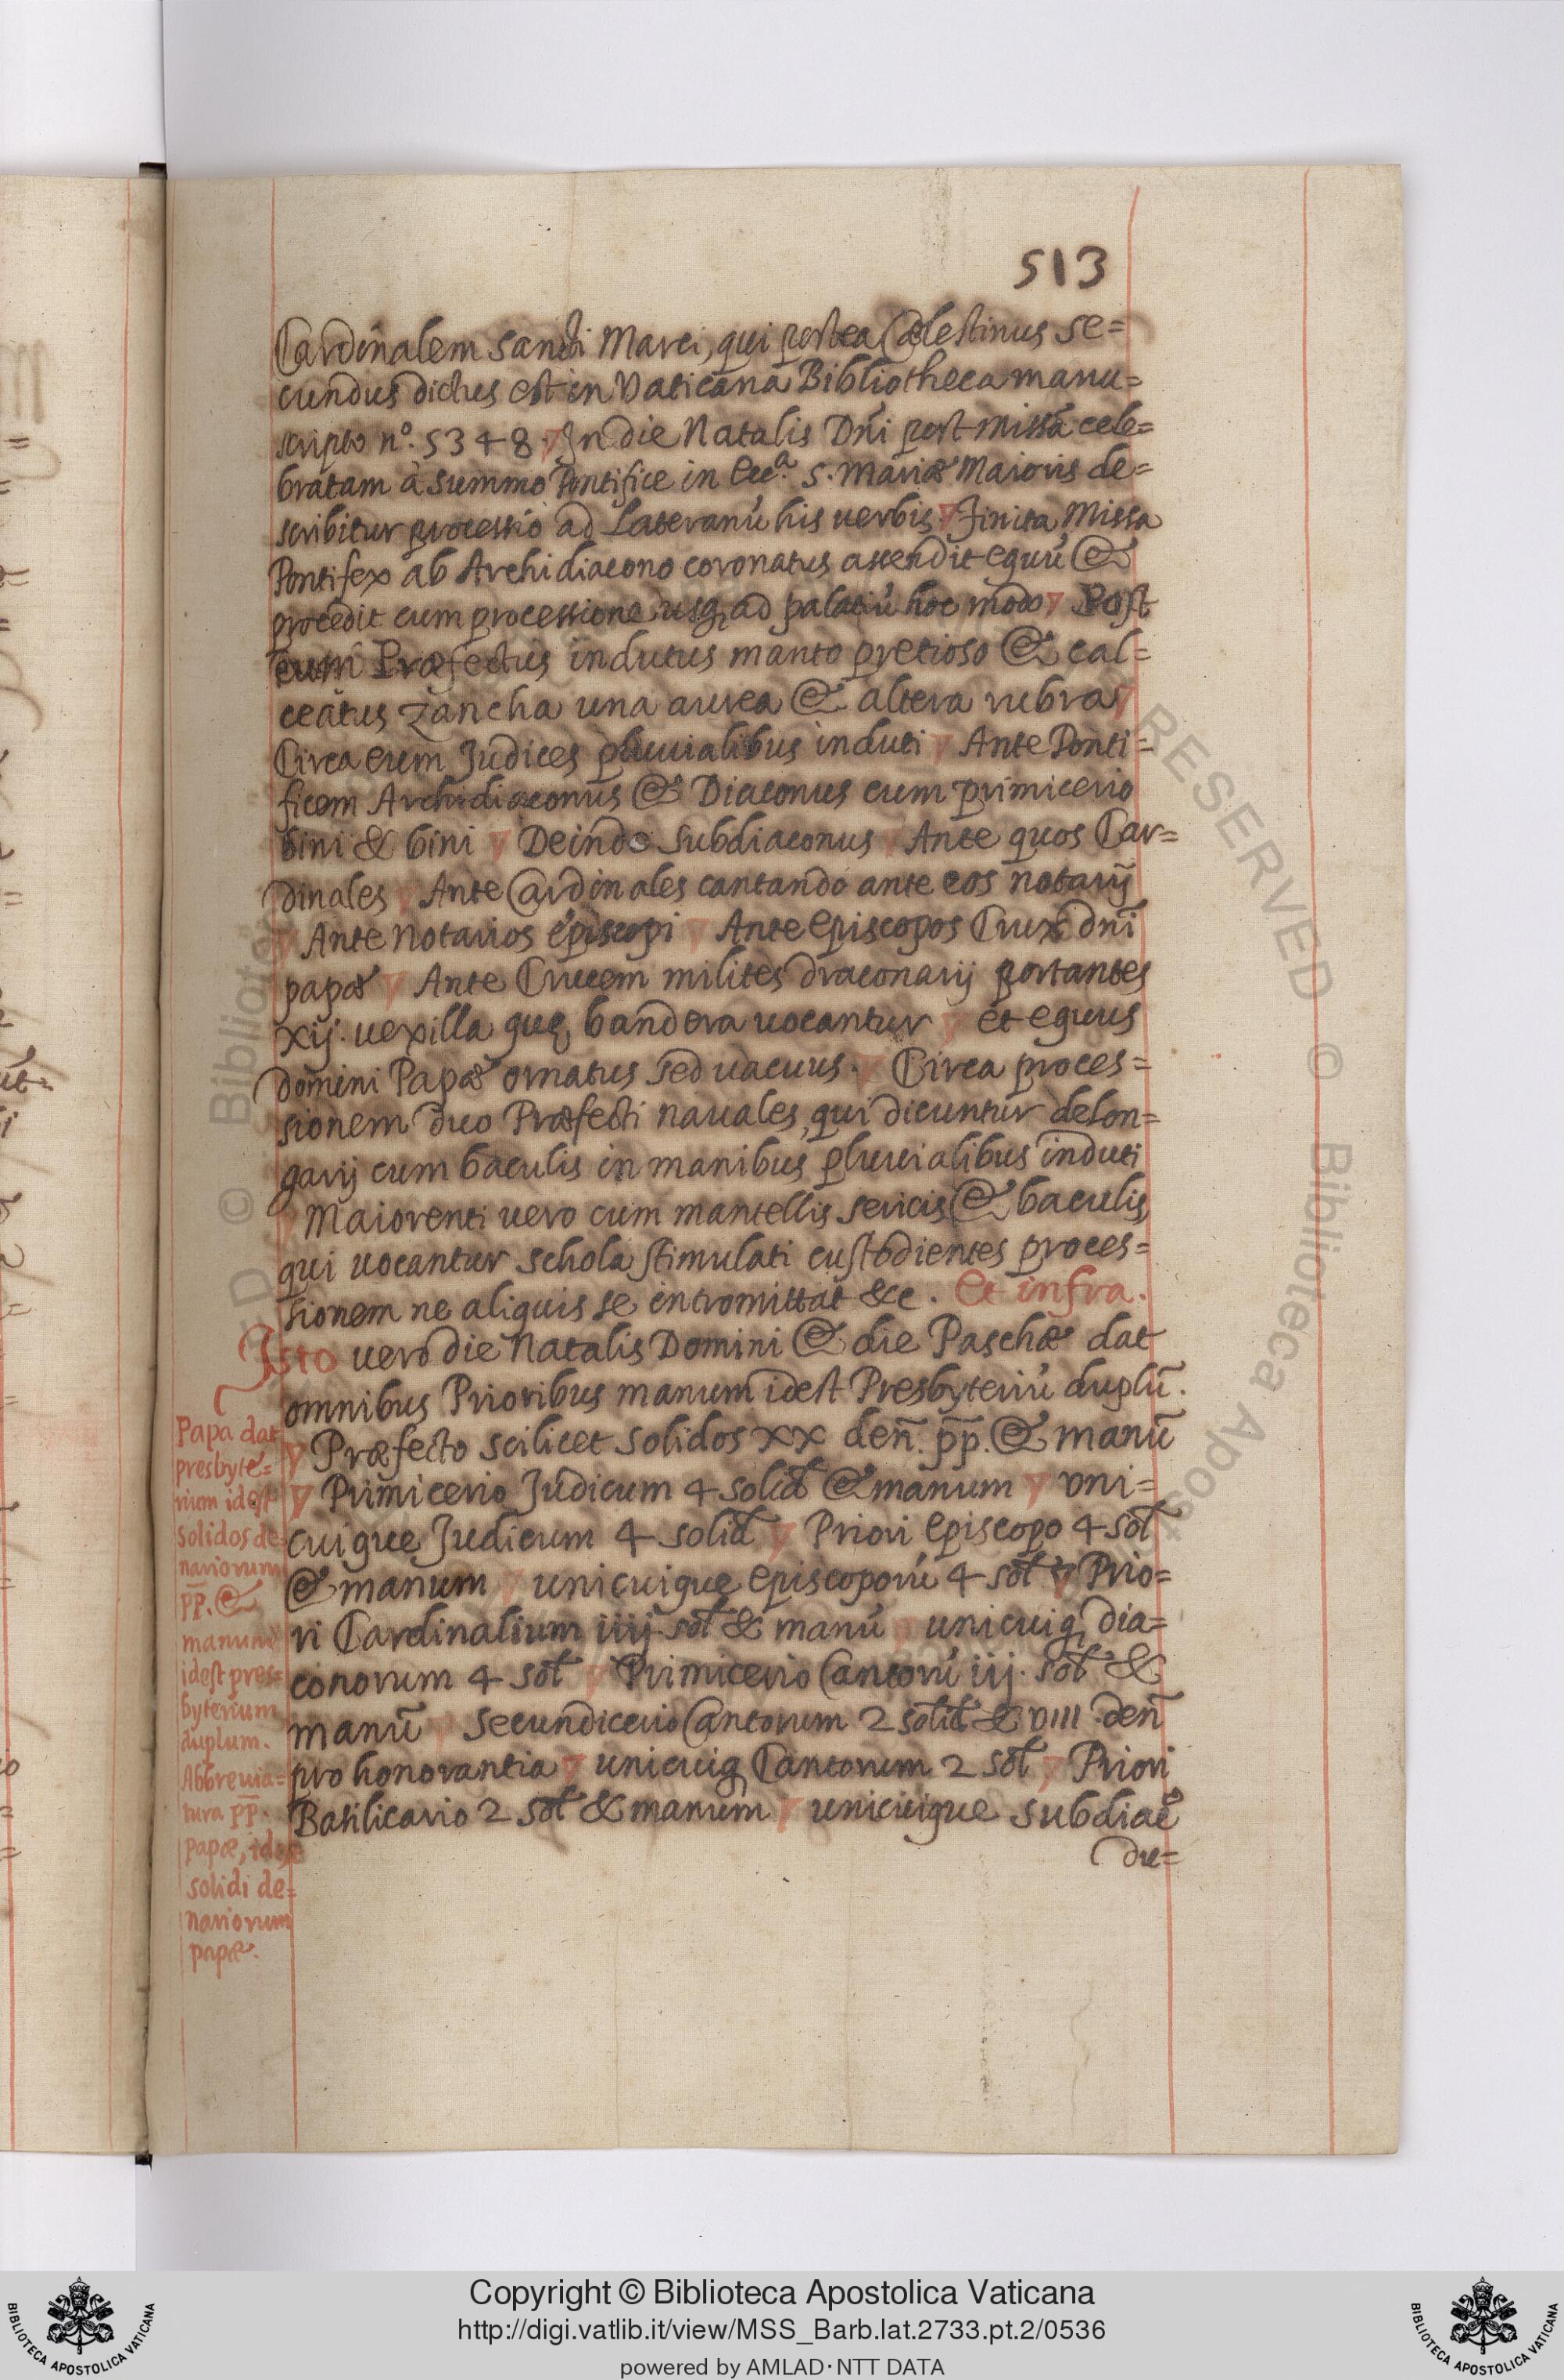 513
Cardinalem sancti Marci, qui postea Cælestinus se=
cundus dictus est in Vaticana Bibliotheca manu=
scripto nº. 5348. In die Natalis Dñi post missã cele=
bratam à summo Pontifice in Eccª. S. Mariæ Maioris de=
scribitur processio ad Lateranũ his uerbis. Finita Missa
Pontifex ab Archidiacono coronatus ascendit equũ &
procedit cum processione usq, ad palatiũ hoc modo Post
eum Præfectus indutus manto pretioso & cal=
ceatus zancha una aurea & altera rubra
Circa eum Judices pluuialibus induti Ante Ponti=
ficem Archidiaconus & Diaconus cum primicerio
bini & bini Deinde subdiaconus Ante quos Car=
dinales Ante Cardinales cantando ante eos notarij
Ante Notarios episcopi Ante episcopos Crux dñi
papæ Ante Crucem milites draconarij portantes
xij. uexilla quę bandera uocantur et equus
domini Papæ ornatus sed uacuus. Circa proces=
sionem duo Præfecti nauales, qui dicuntur delon=
garij cum baculis in manibus pluuialibus induti
Maiorenti uero cum mantellis sericis & baculis,
qui uocantur schola stimulati custodientes proces=
sionem ne aliquis se intromittat &c. Et infra.
Isto uero die Natalis Domini & die Paschæ dat
omnibus Prioribus manum idest Presbyteriũ duplũ.
Præfecto scilicet solidos XX deñ. p̄p̄. & manũ
Primicerio Judicum 4 solid & manum vni=
cuique Judicum 4 solid Priori episcopo 4 sol
& manum unicuique episcoporũ 4 sol Prio=
ri Cardinalium iiij. sol & manũ unicuiq, dia=
conorum 4 sol Primicerio Cantorũ iij. sol &
manũ Secundicerio Cantorum 2 solid & VIII deñ
pro honorantia unicuiq, Cantorum 2 sol Priori
Basilicario 2 sol & manum unicuique subdiac
du=
Papa dat
presbyte=
rium idest
solidos de=
nariorum
p̄p̄. &
manum
idest pres=
byterium
duplum.
Abbreuia=
tura p̄p̄.
papæ, idest
solidi de=
nariorum
papæ.
Copyright © Biblioteca Apostolica Vaticana
http://digi.vatlib.it/view/MSS_Barb.lat.2733.pt.2/0536
powered by AMLAD·NTT DATA
BIBLIOTECA APOSTOLICA VATICANA
BIBLIOTECA APOSTOLICA VATICANA